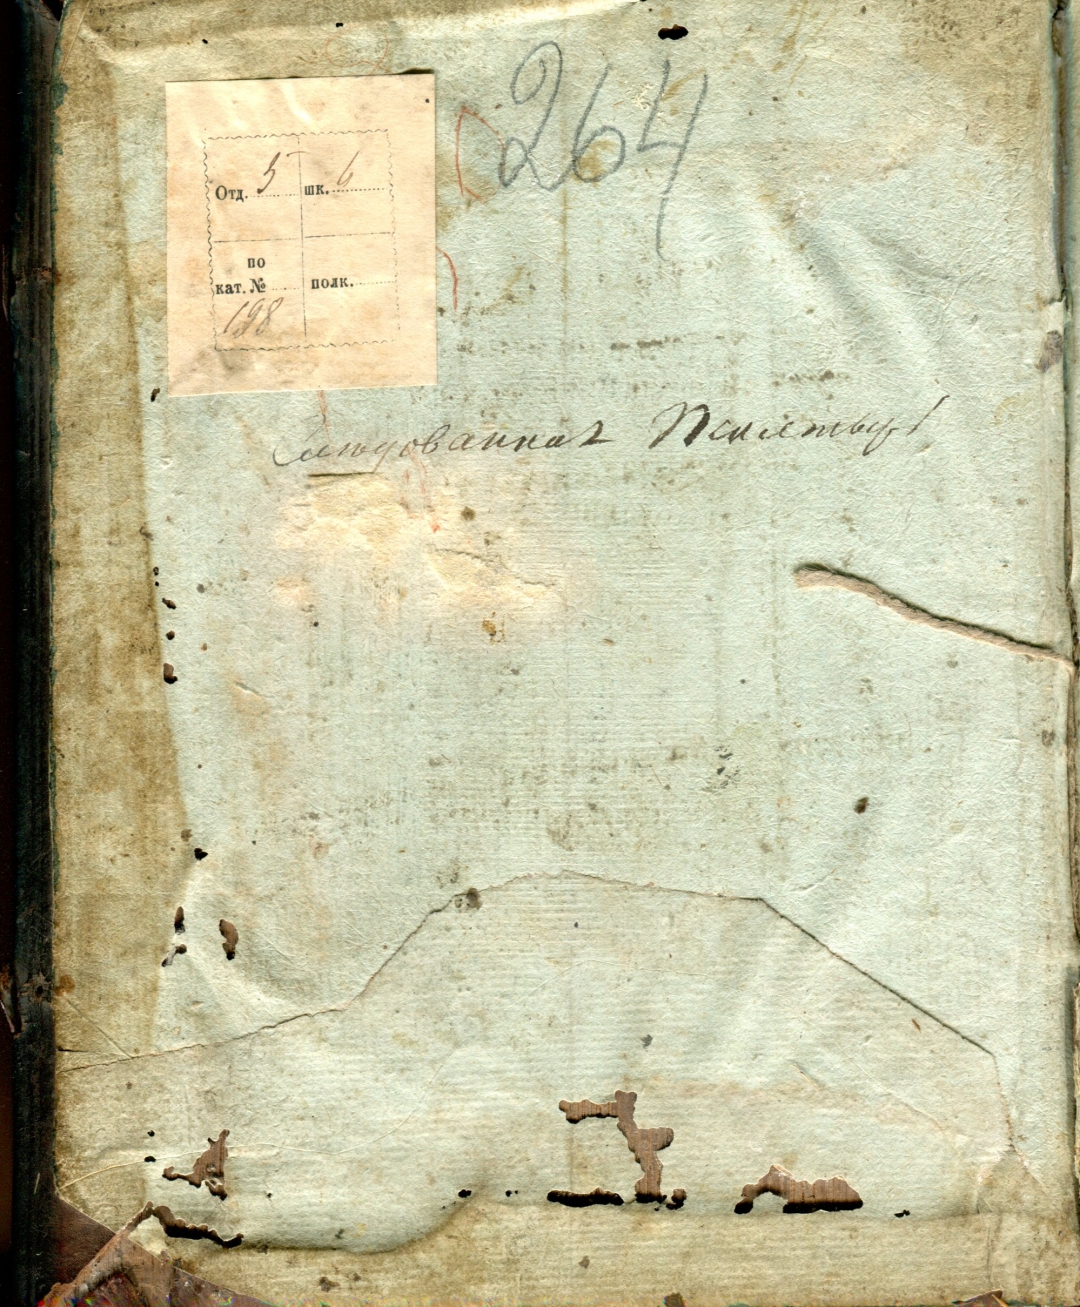 264
Отд. 5 шк. 6
по
кат. № полк.
198
Следованная Псалтырь